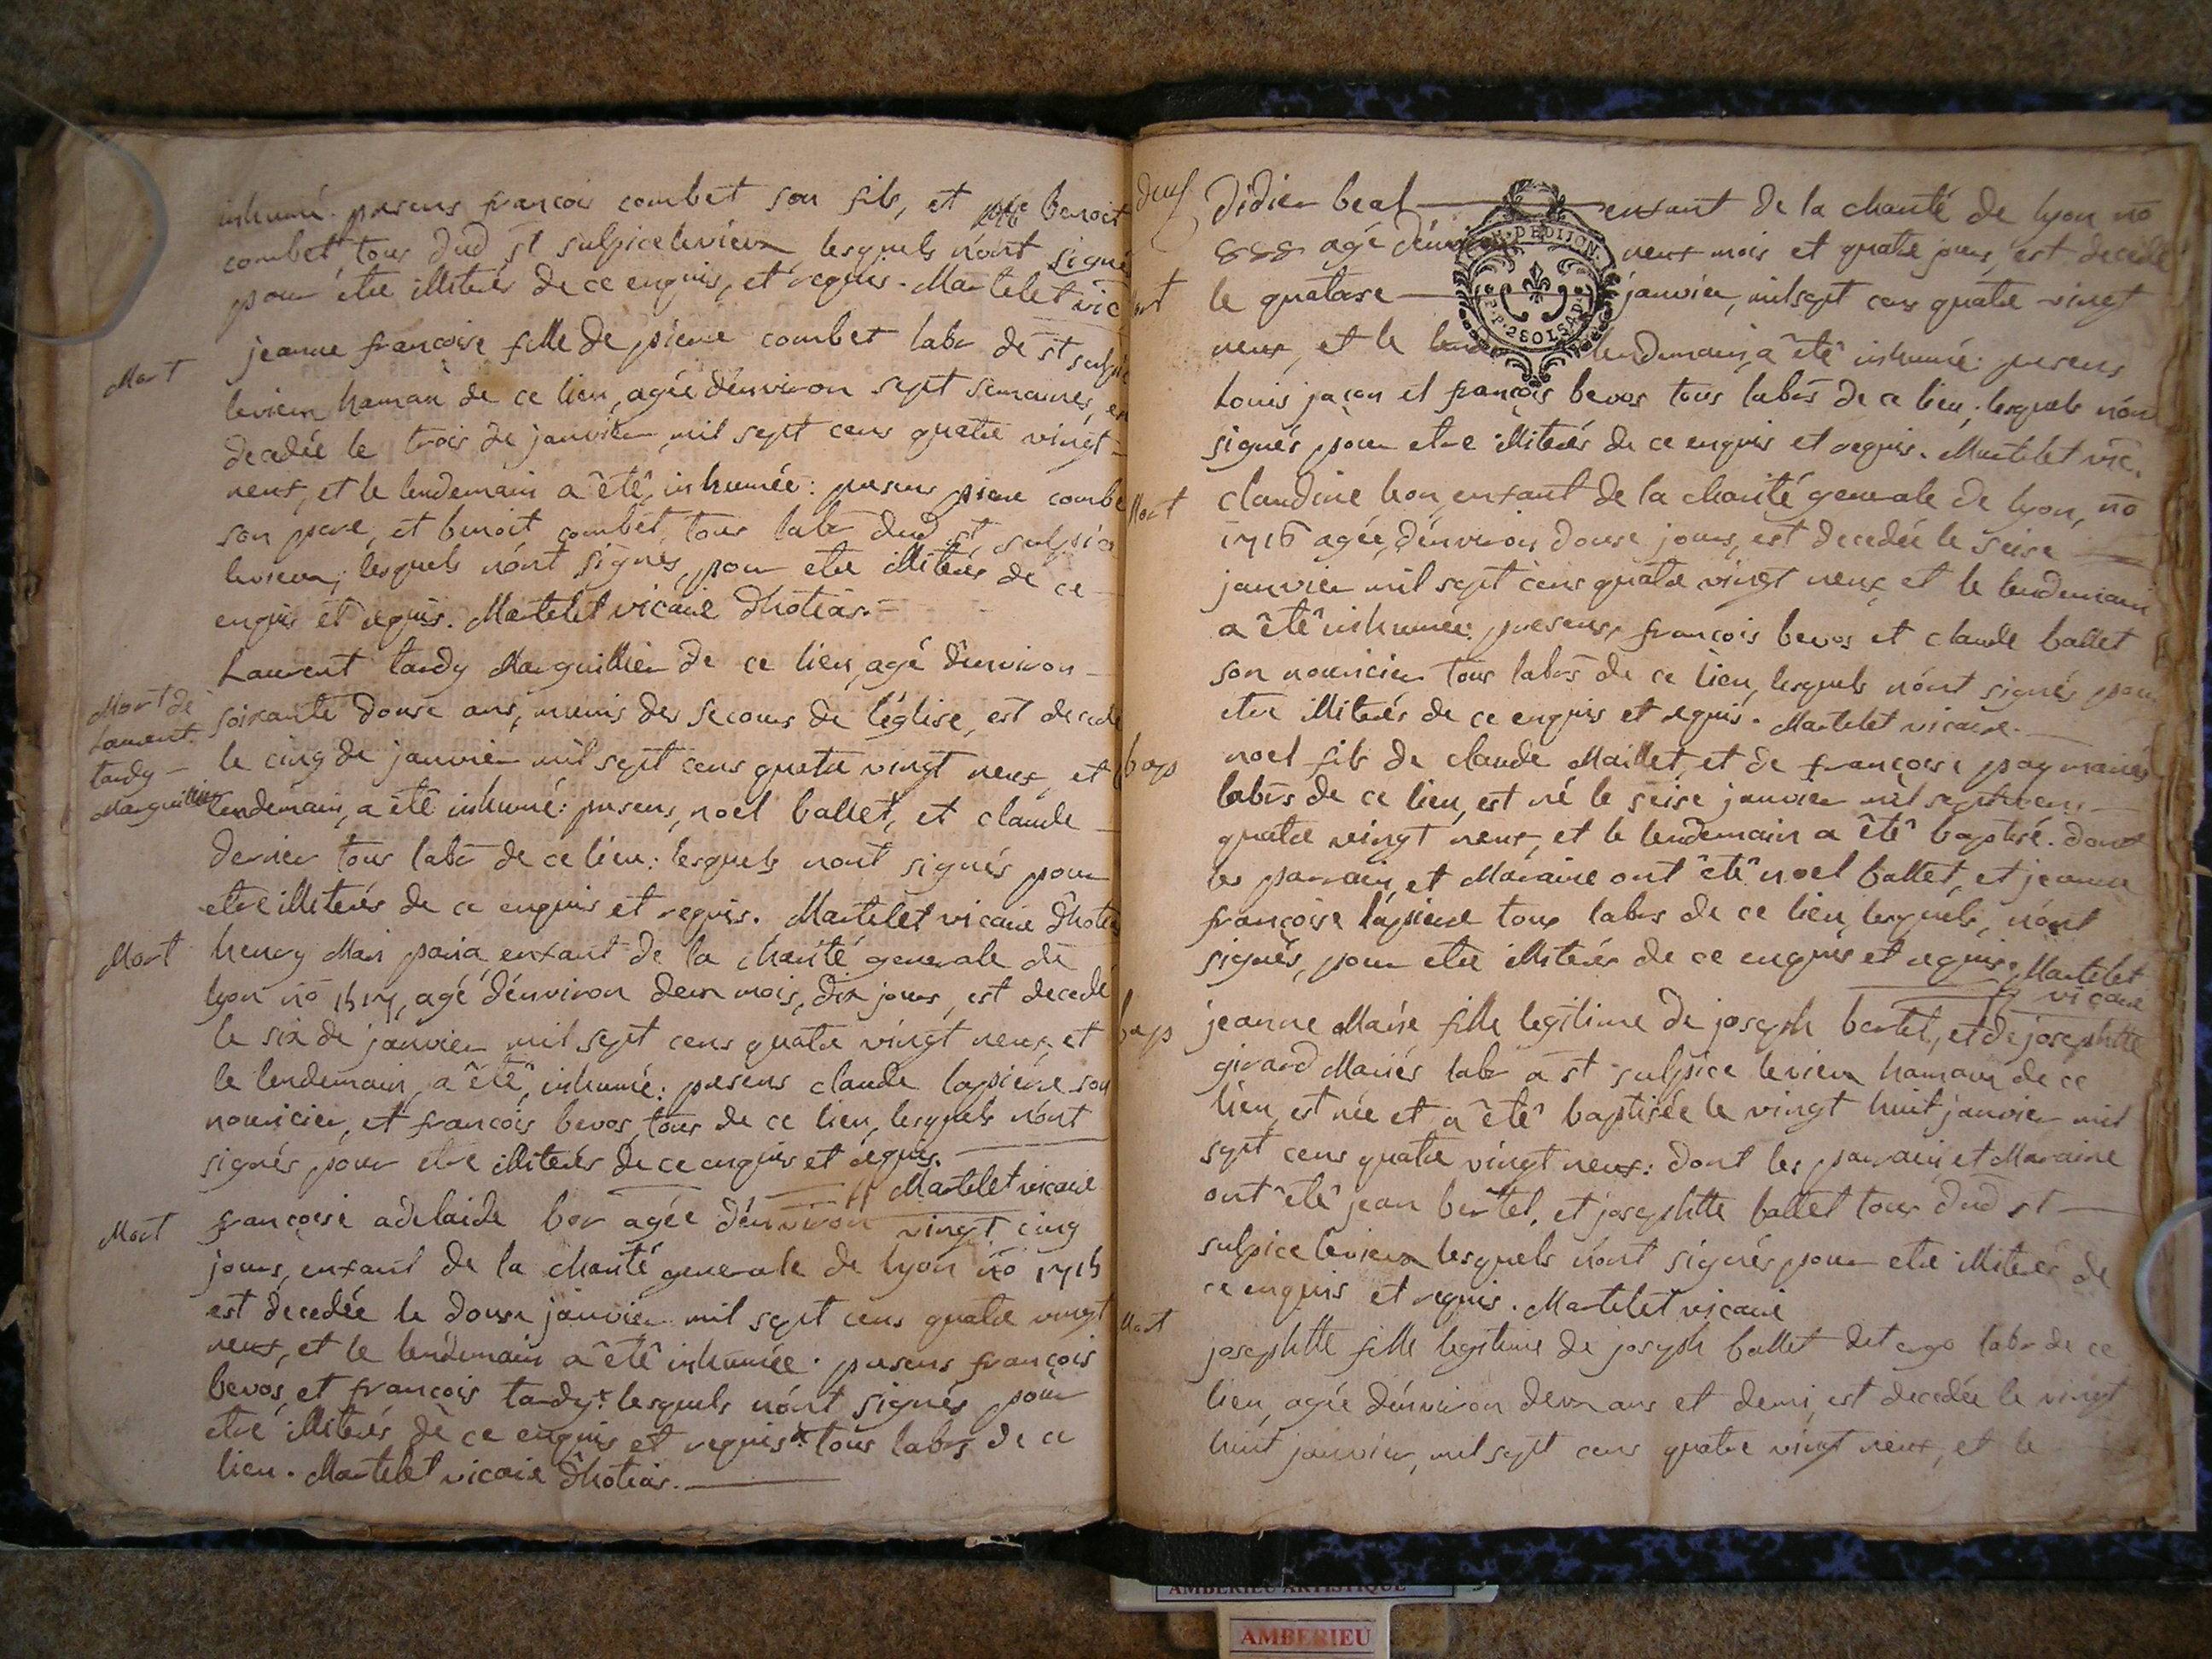 inhumé. presens françois combet son fils, et benoit
combet, tous dud st sulpice levieux, lesquels n'ont signé
pour être illiterés de ce enquis, et requis. Martelet vic
Mort
jeanne françoise fille de pierre combet labr de st sulpice
levieux hamau de ce lieu, agée d'environ sept semaines, est
decedée le trois de janvier mil sept cens quatre vingt
neuf, et le lendemain a êtê inhumée: presens pierre combe
son pere, et benoit combet, tous labr dud st sulpice
levieux; lesquels n'ont signés, pour etre illiterés de ce
enquis et requis. Martelet vicaire d'hotias.
Laurent tardy Marguillier de ce lieu, agé d'environ
Mort de
Laurent
tardy
Marguillier
soixante douse ans, munis des secours de l'église, est decedé
le cinq de janvier mil sept cens quatre vingt neuf, et
lendemain, a êtê inhumé: presens, noel ballet, et claude
dernier tous labr de ce lieu: lesquels nont signés pour
etre illiterés de ce enquis et requis. Martelet vicaire d'hotias
Mort
henry Mari enfant de la charité generale de
lyon no agé d'environ deux mois, dix jours, est decedé
le six de janvier mil sept cens quatre vingt neuf, et
le lendemain, a êtê, inhumé: presens claude lapierre son
nouricier, et françois bevos, tous de ce lieu, lesquels n'ont
signés pour etre illiterés de ce enquis et requis.
Martelet vicaire
Mort
françoise adelaide bor agée d'environ vingt cinq
jours, enfant de la charité generale de lyon no
est decedée le douse janvier mil sept cens quatre vingt
neuf, et le lendemain a êtê inhumée. presens françois
bevos, et françois tardy: lesquels n'ont signés pour
etre illiterés de ce enquis et requis tous labrs de ce
lieu. Martelet vicaire d'hotias.
Didier beal enfant de la charité de lyon no
888 agé d'environ neuf mois et quatre jours, est decedé
le quatorse janvier, mil sept cens quatre vingt
neuf, et le lendemain, a êtê inhumé: presens
DE DIJON.
2 SOLS
Louis jaçon et françois bevos tous labrs de ce lieu, lesquels n'ont
signés pour etre illiterés de ce enquis et requis. Martelet vic.
Mort
claudine lion, enfant de la charité generale de lyon, no
1716 agée, d'environ douse jours, est decedée le seise
janvier mil sept cens quatre vingt neuf, et le lendemain
a êtê inhumée. presens, françois bevos et claude ballet
son nouricier tous labrs de ce lieu, lesquels n'ont signés pour
etre illiterés de ce enquis et requis. Martelet vicaire.
bap
noel fils de claude Maillet, et de françoise pay mariés
labrs de ce lieu, est né le seise janvier mil sept cens
quatre vingt neuf, et le lendemain a êtê baptisé. dont
les parrain, et Maraine ont êtê noel ballet, et jeanne
françoise lapierre tous labrs de ce lieu, lesquels, n'ont
signés, pour etre illiterés de ce enquis et requis. Martelet
vicaire
bap
jeanne Marie fille legitime de joseph bertet, et de josephtte
girard Mariés labr a st sulpice levieux hamau de ce
lieu, est née et a êtê baptisée le vingt huit janvier mil
sept cens quatre vingt neuf: dont les parrain, et Maraine
ont êtê jean bertet, et josephtte ballet tous dud st
sulpice levieux lesquels n'ont signés pour etre illiterés de
ce enquis et requis. Martelet vicaire
Mort
josephtte fille legitime de joseph ballet labr de ce
lieu, agée d'environ deux ans et demi, est decedée le vingt
huit janvier, mil sept cens quatre vingt neuf, et le
AMBERIEU ARTISTIQUE
AMBERIEU